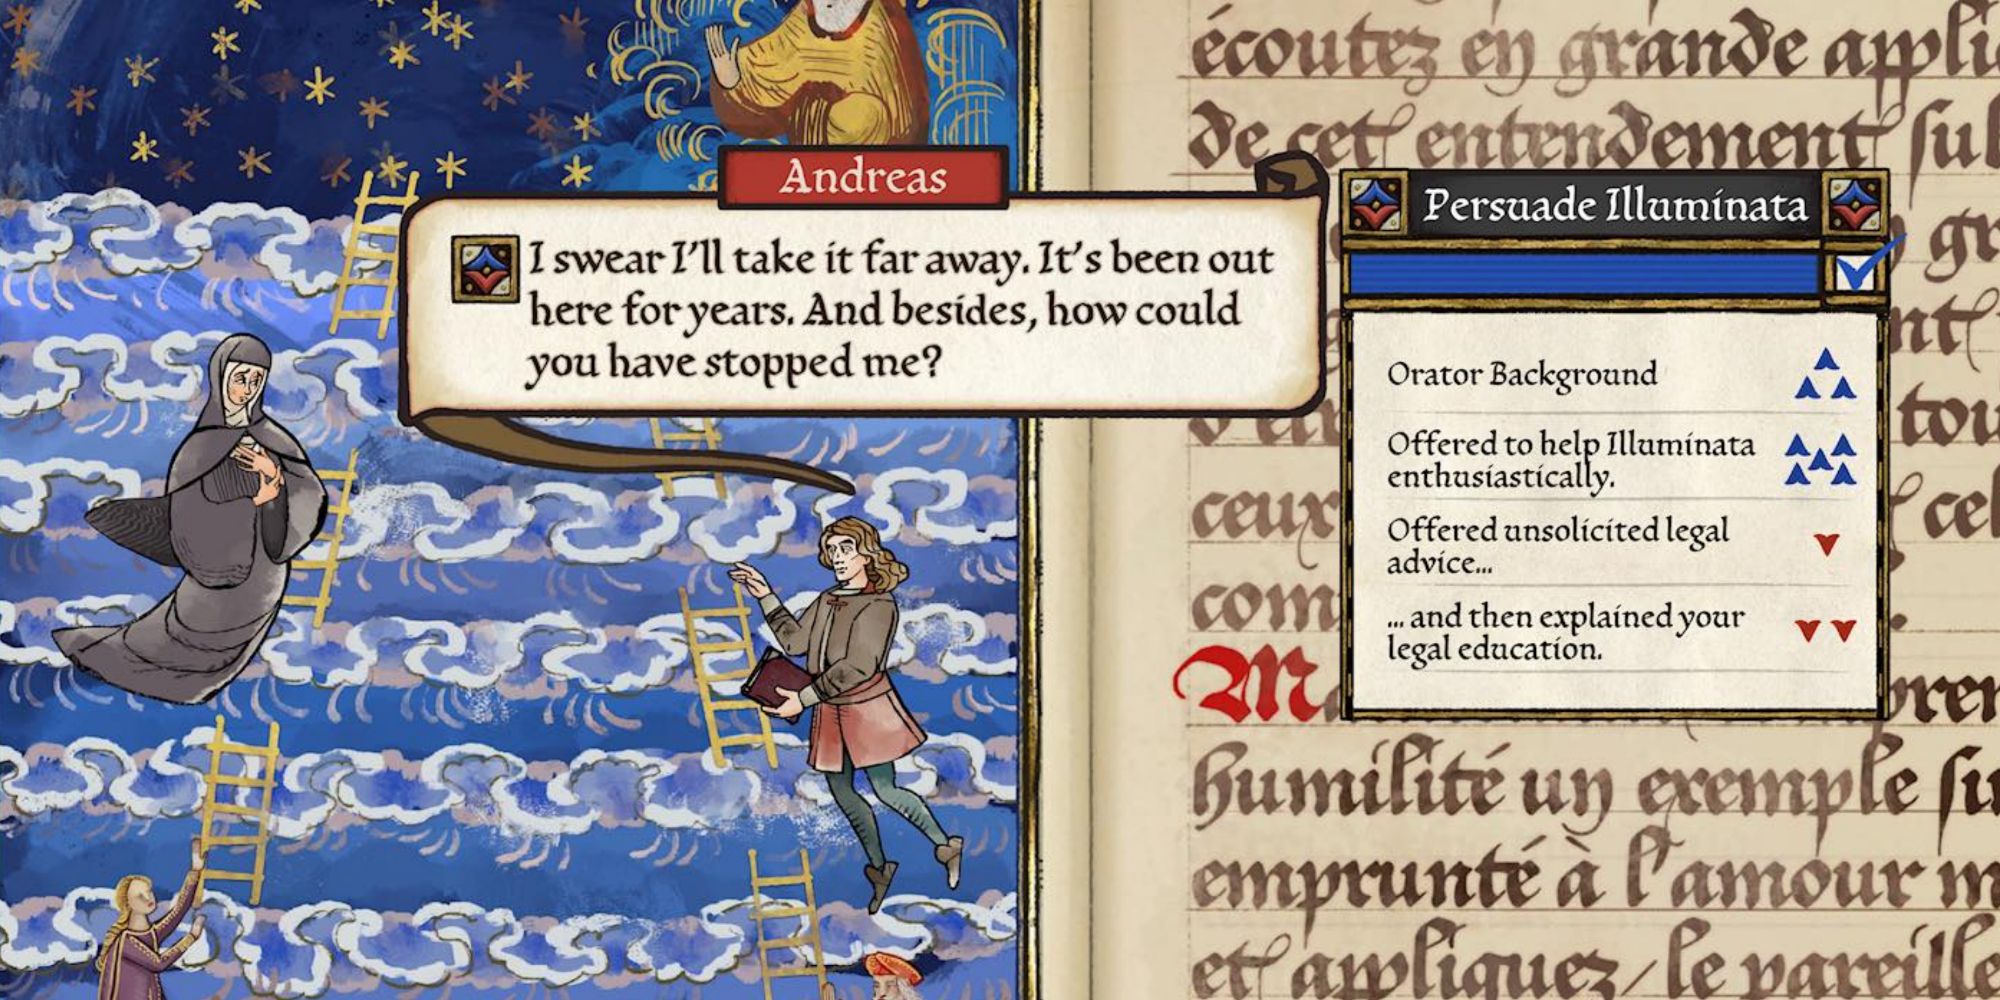 Andreas
I swear I'll take it far away. It's been out
here for years. And besides, how could
you have stopped me?
Persuade Illuminata
Orator Background
Offered to help Illuminata
enthusiastically.
Offered unsolicited legal
advice...
... and then explained your
legal education.
écoutez en grande
de cet entendement
ceux
humilité un exemple
emprunté à l'amour
et appliquez / le pareille